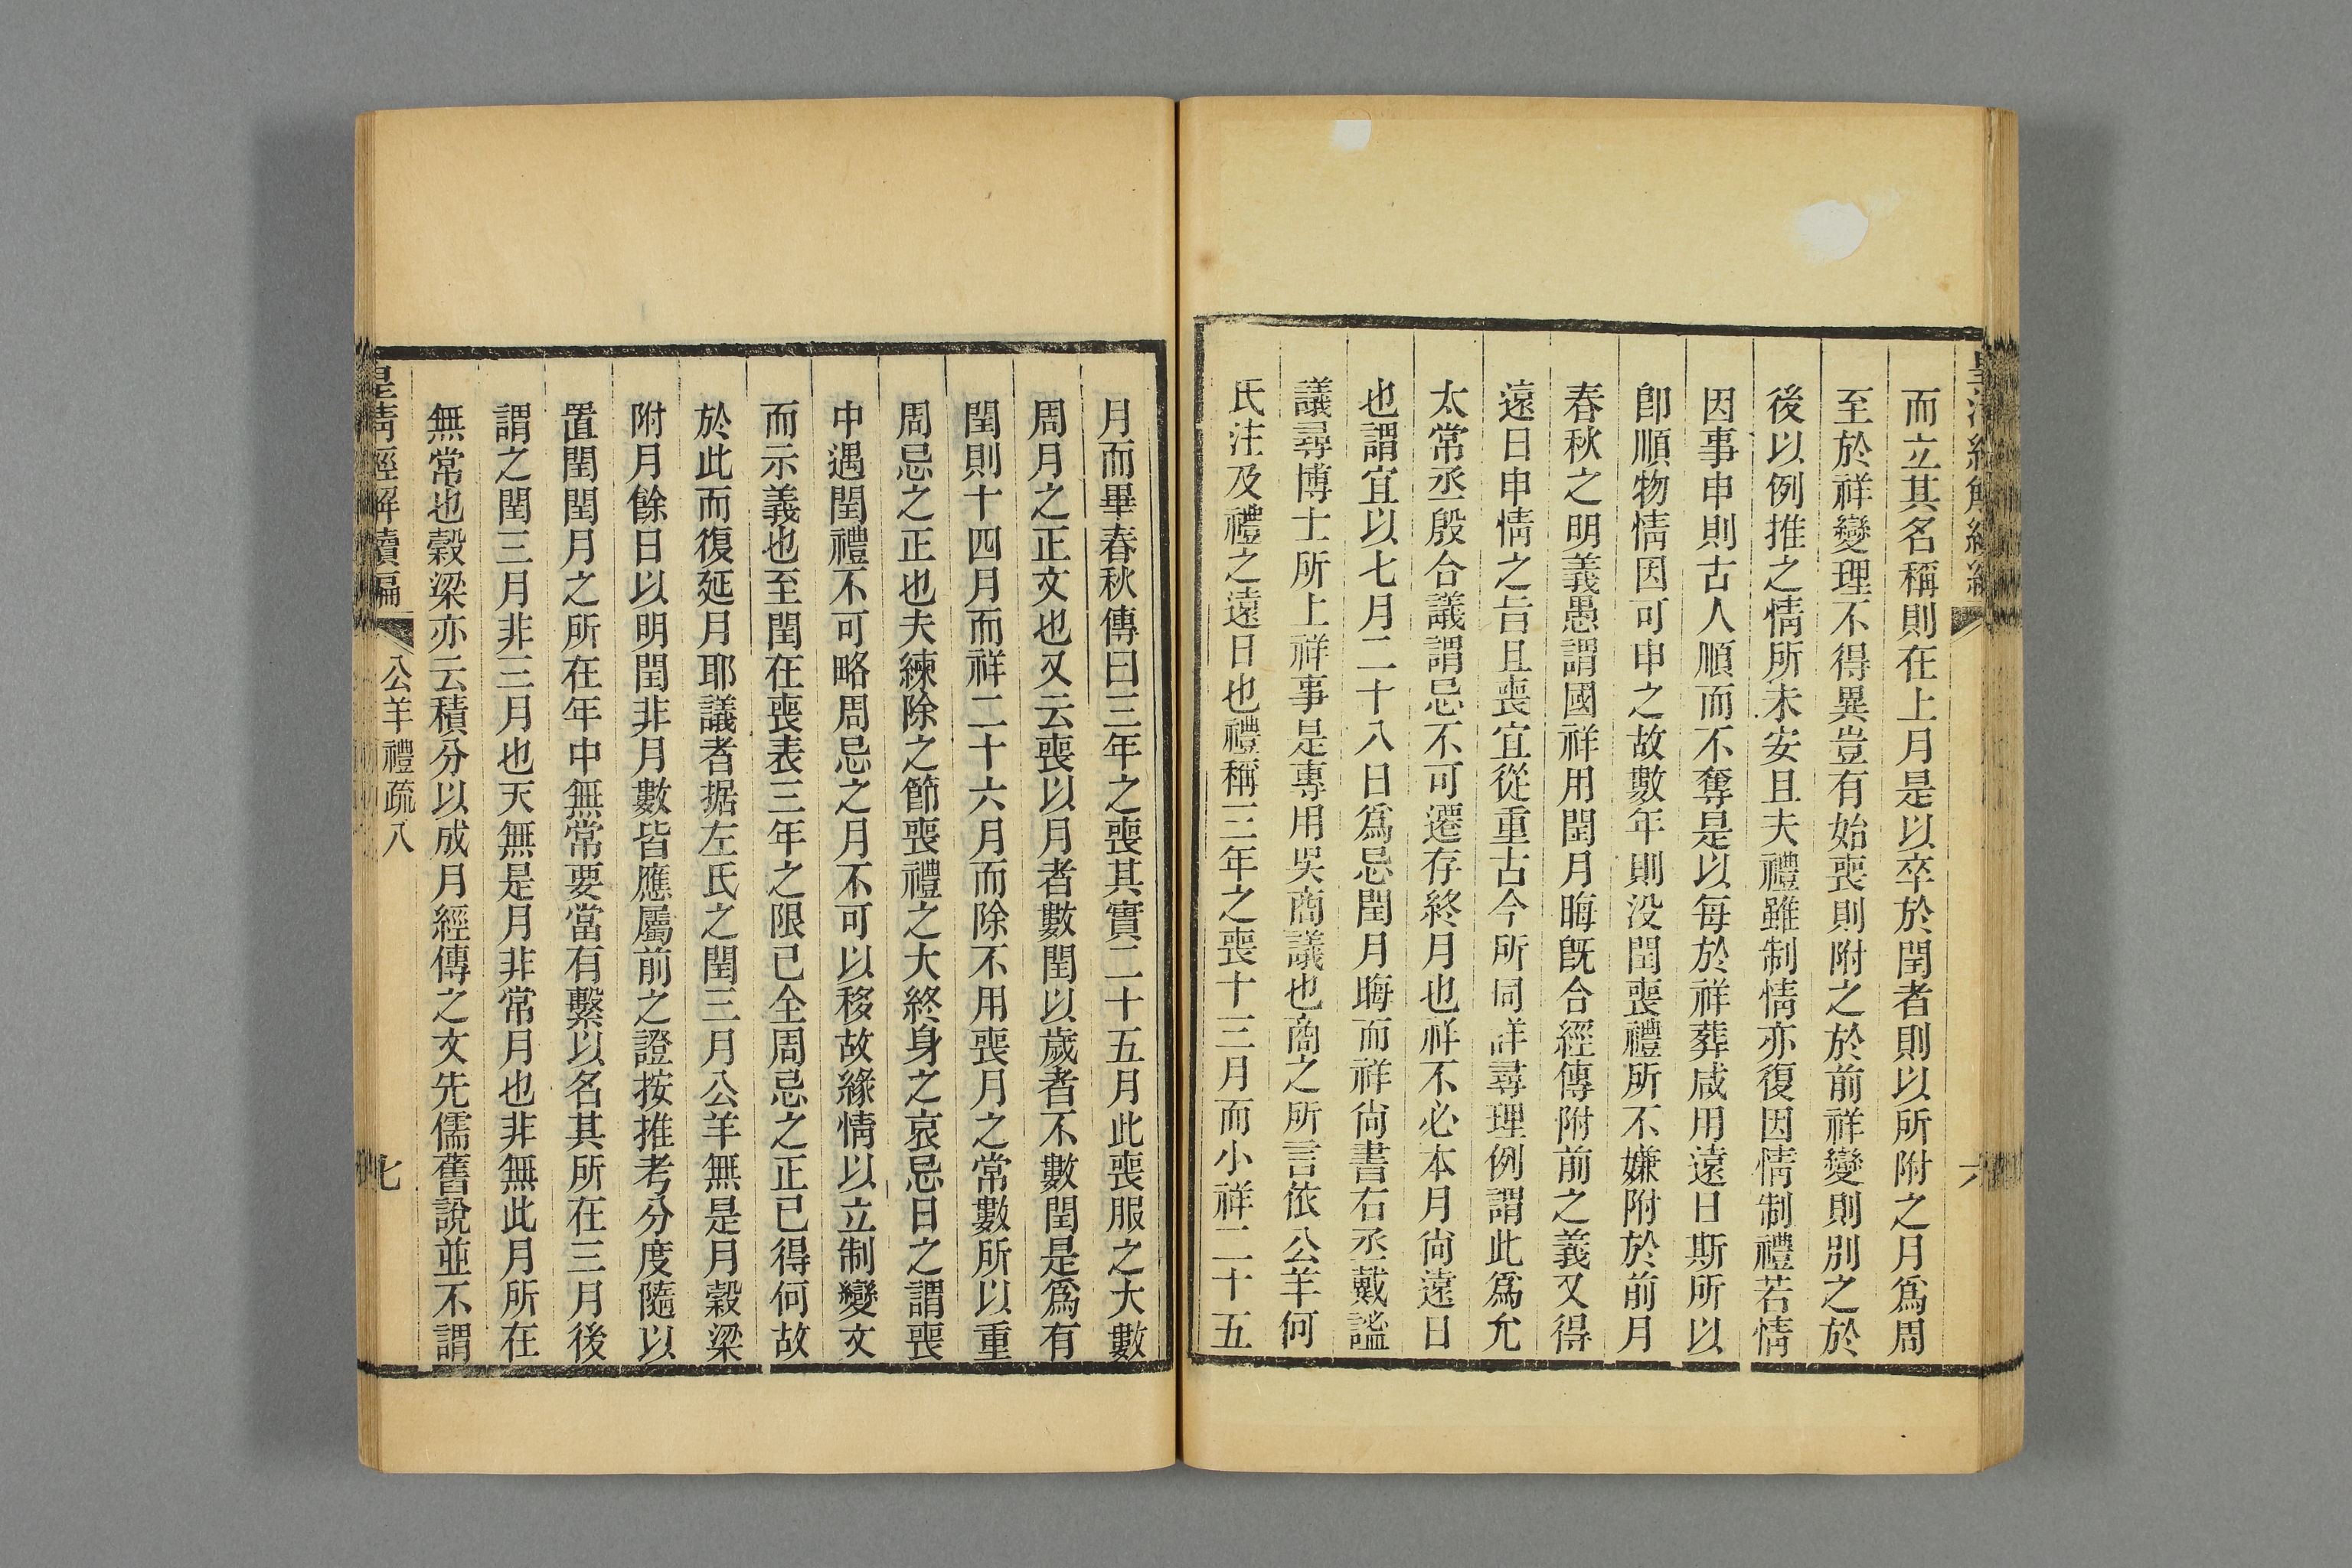 而立其名稱則在上月是以卒於閏者則以所附之月爲周
至於祥變理不得異豈有始喪則附之於前祥變則別之於
後以例推之情所未安且夫禮雖制情亦復因情制禮若情
因事申則古人順而不奪是以每於祥葬咸用遠日斯所以
卽順物情因可申之故數年則没閏喪禮所不嫌附於前月
春秋之明義愚謂國祥用閏月晦旣合經傳附前之義又得
遠日申情之旨且喪宜從重古今所同詳尋理例謂此爲允
太常丞殷合議謂忌不可遷存終月也祥不必本月尙遠日
也謂宜以七月二十八日爲忌閏月晦而祥尙書右丞戴謐
議尋博士所上祥事是專用吳商議也商之所言依公羊何
氏注及禮之遠日也禮稱三年之喪十三月而小祥二十五
六
月而畢春秋傳曰三年之喪其實二十五月此喪服之大數
周月之正文也又云喪以月者數閏以歲者不數閏是爲有
閏則十四月而祥二十六月而除不用喪月之常數所以重
周忌之正也夫練除之節喪禮之大終身之哀忌日之謂喪
中遇閏禮不可略周忌之月不可以移故緣情以立制變文
而示義也至閏在喪表三年之限已全周忌之正已得何故
於此而復延月耶議者据左氏之閏三月公羊無是月穀梁
附月餘日以明閏非月數皆應屬前之證按推考分度隨以
置閏閏月之所在年中無常要當有繫以名其所在三月後
謂之閏三月非三月也天無是月非常月也非無此月所在
無常也穀梁亦云積分以成月經傳之文先儒舊說並不謂
皇淸經解續編
公羊禮疏八
七